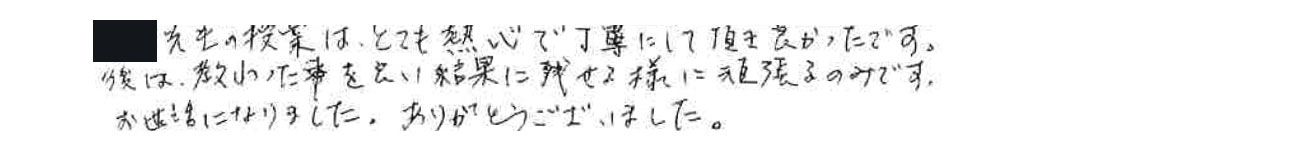 先生の授業は、とても熱心で丁寧にして頂き良かったです。
後は、教わった事を良い結果に残せる様に頑張るのみです。
お世話になりました。ありがとうございました。